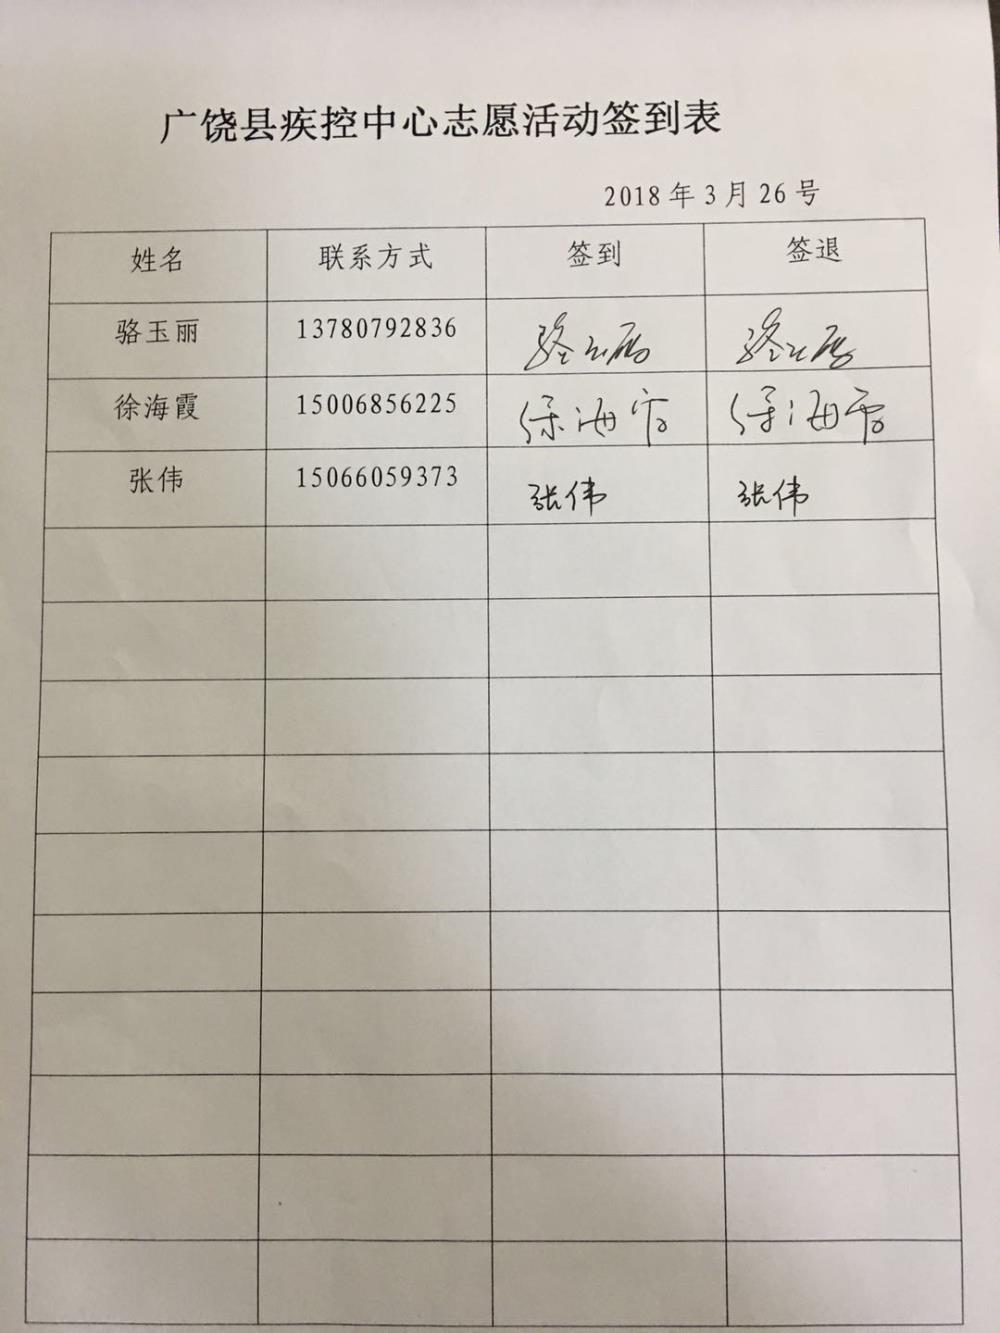 广饶县疾控中心志愿活动签到表
2018 年 3 月 26 号
姓名 联系方式 签到 签退
骆玉丽 13780792836 骆玉丽 骆玉丽
徐海霞 15006856225 徐海霞 徐海霞
张伟 15066059373 张伟 张伟